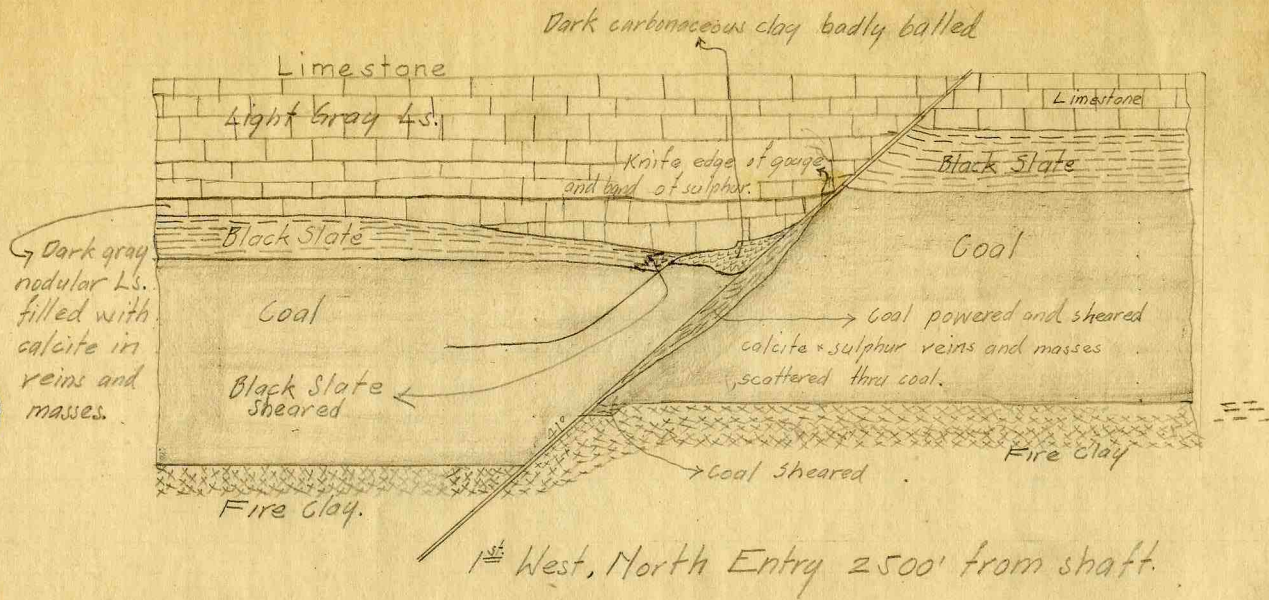 Dark carbonaceous clay badly balled
Limestone
Light Gray Ls.
Limestone
Knife edge of gouge
and band of sulphur.
Black Slate
Black Slate
Dark gray
nodular Ls.
filled with
calcite in
veins and
masses.
Coal
Coal
Coal powered and sheared
calcite & sulphur veins and masses
scattered thru coal.
Black Slate
Sheared
Coal Sheared
Fire Clay
Fire Clay.
1st West, North Entry 2500' from shaft.